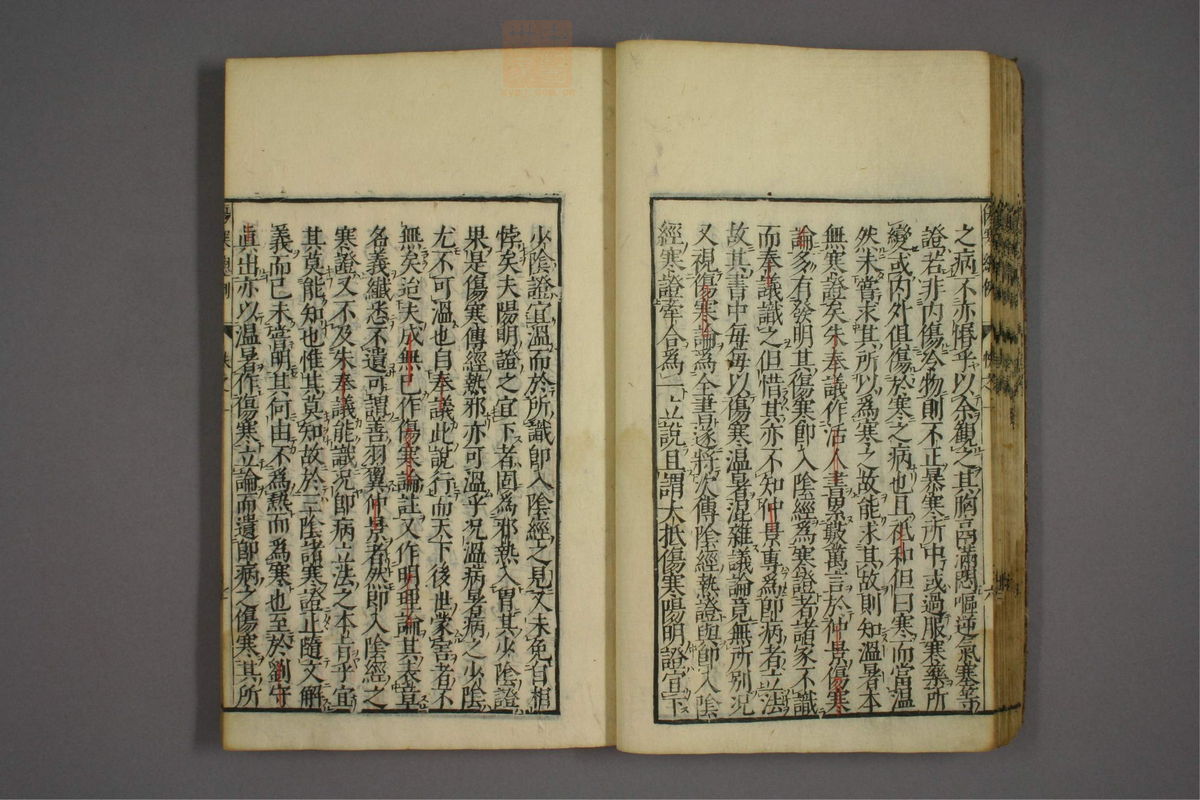 之病不亦悞乎以余觀之其胸鬲滿悶嘔逆氣塞等
證若非內傷冷物則不正暴寒所中或過服寒藥所
變或內外俱傷於寒之病也且祗和但曰寒而當溫
然未嘗求其所以爲寒之故能求其故則知溫暑本
無寒證矣朱奉議作活人書累數萬言於仲景傷寒
論多有發明其傷寒即入陰經爲寒證者諸家不識
而奉議識之但惜其亦不知仲景專爲即病者立法
故其書中每每以傷寒溫暑混雜議論竟無所別況
又視傷寒論爲全書遂將次傳陰經熱證與即入陰
經寒證牽合爲一立說且謂大抵傷寒陽明證宜下
少陰證宜溫而於所識即入陰經之見又未免自相
悖矣夫陽明證之宜下者固爲邪熱入胃其少陰證
果是傷寒傳經熱邪亦可溫乎況溫病暑病之少陰
尤不可溫也自奉議此說行而天下後世蒙害者不
無矣迨夫成無已作傷寒論註又作明理論其表章
名義纖悉不遺可謂善羽翼仲景者然即入陰經之
寒證又不及朱奉議能識況即病立法之本旨乎宜
其莫能知也惟其莫知故於三陰諸寒證止隨文解
義而已未嘗明其何由不爲熱而爲寒也至於劉守
眞出亦以溫暑作傷寒立論而遺即病之傷寒其所